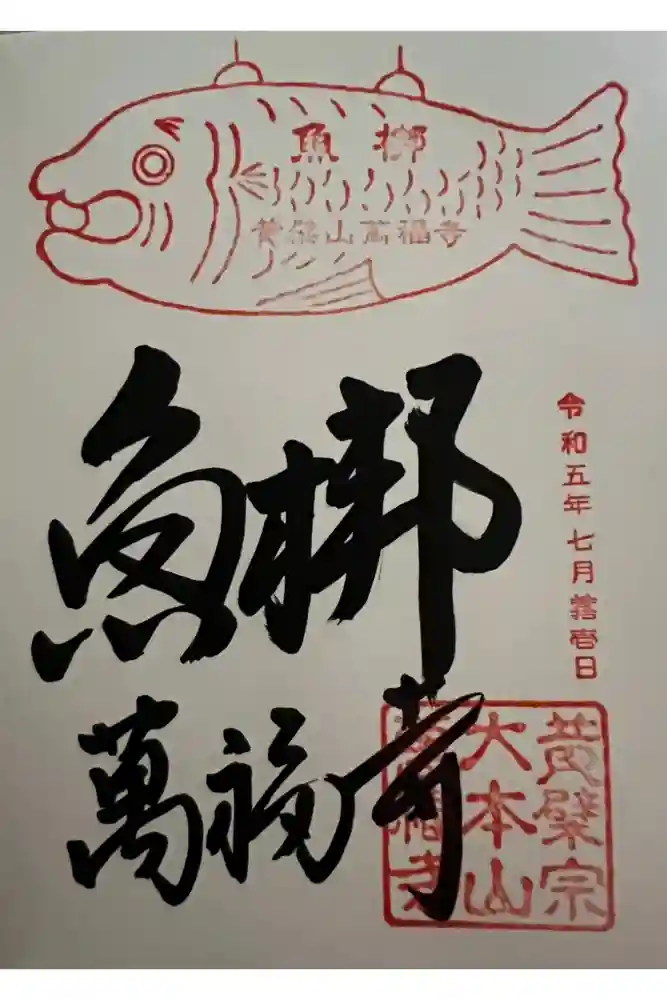 魚梆
黄檗山萬福寺
魚梆
萬福寺
令和五年七月壱日
黄檗宗
大本山
萬福寺